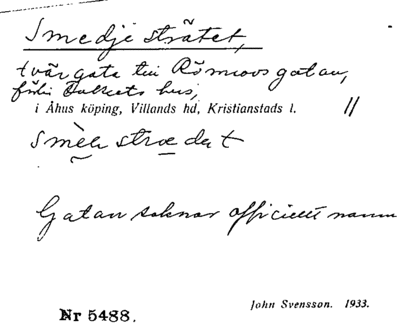 Smedjesträtet,
tvärgata till Römovsgatan,
förbi Folkets hus,
i Åhus köping, Villands hd, Kristianstads l. //
Smèĕstrædet
Gatan saknar officiellt namn
John Svensson. 1933.
Nr 5488.